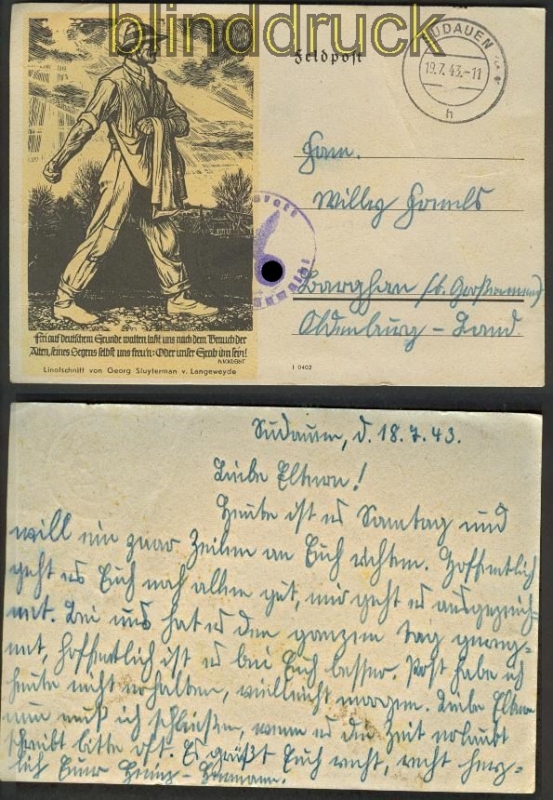 blinddruck
Feldpost
SUDAUEN
19.7.43.-11
h
Fam.
Willy
Oldenburg-Land
Frei auf deutschem Grunde walten laßt uns nach dem Brauch der
Alten, seines Segens selbst uns freu'n: Oder unser Grab ihn sein!
Linolschnitt von Georg Sluyterman v. Langeweyde
I 0402
Sudauen, d. 18.7.43.
Liebe Eltern!
Heute ist es Sonntag und
will ein paar Zeilen an Euch richten. Hoffentlich
geht es Euch noch allen gut, mir geht es ausgezeich-
net. Bei uns hat es den ganzen Tag gereg-
net, hoffentlich ist es bei Euch besser. Post habe ich
heute nicht erhalten, vielleicht morgen. Liebe Eltern
nun muß ich schließen, wenn es die Zeit erlaubt
schreibt bitte oft. Es grüßt Euch recht, recht herz-
lich Euer Heinz-Hermann.